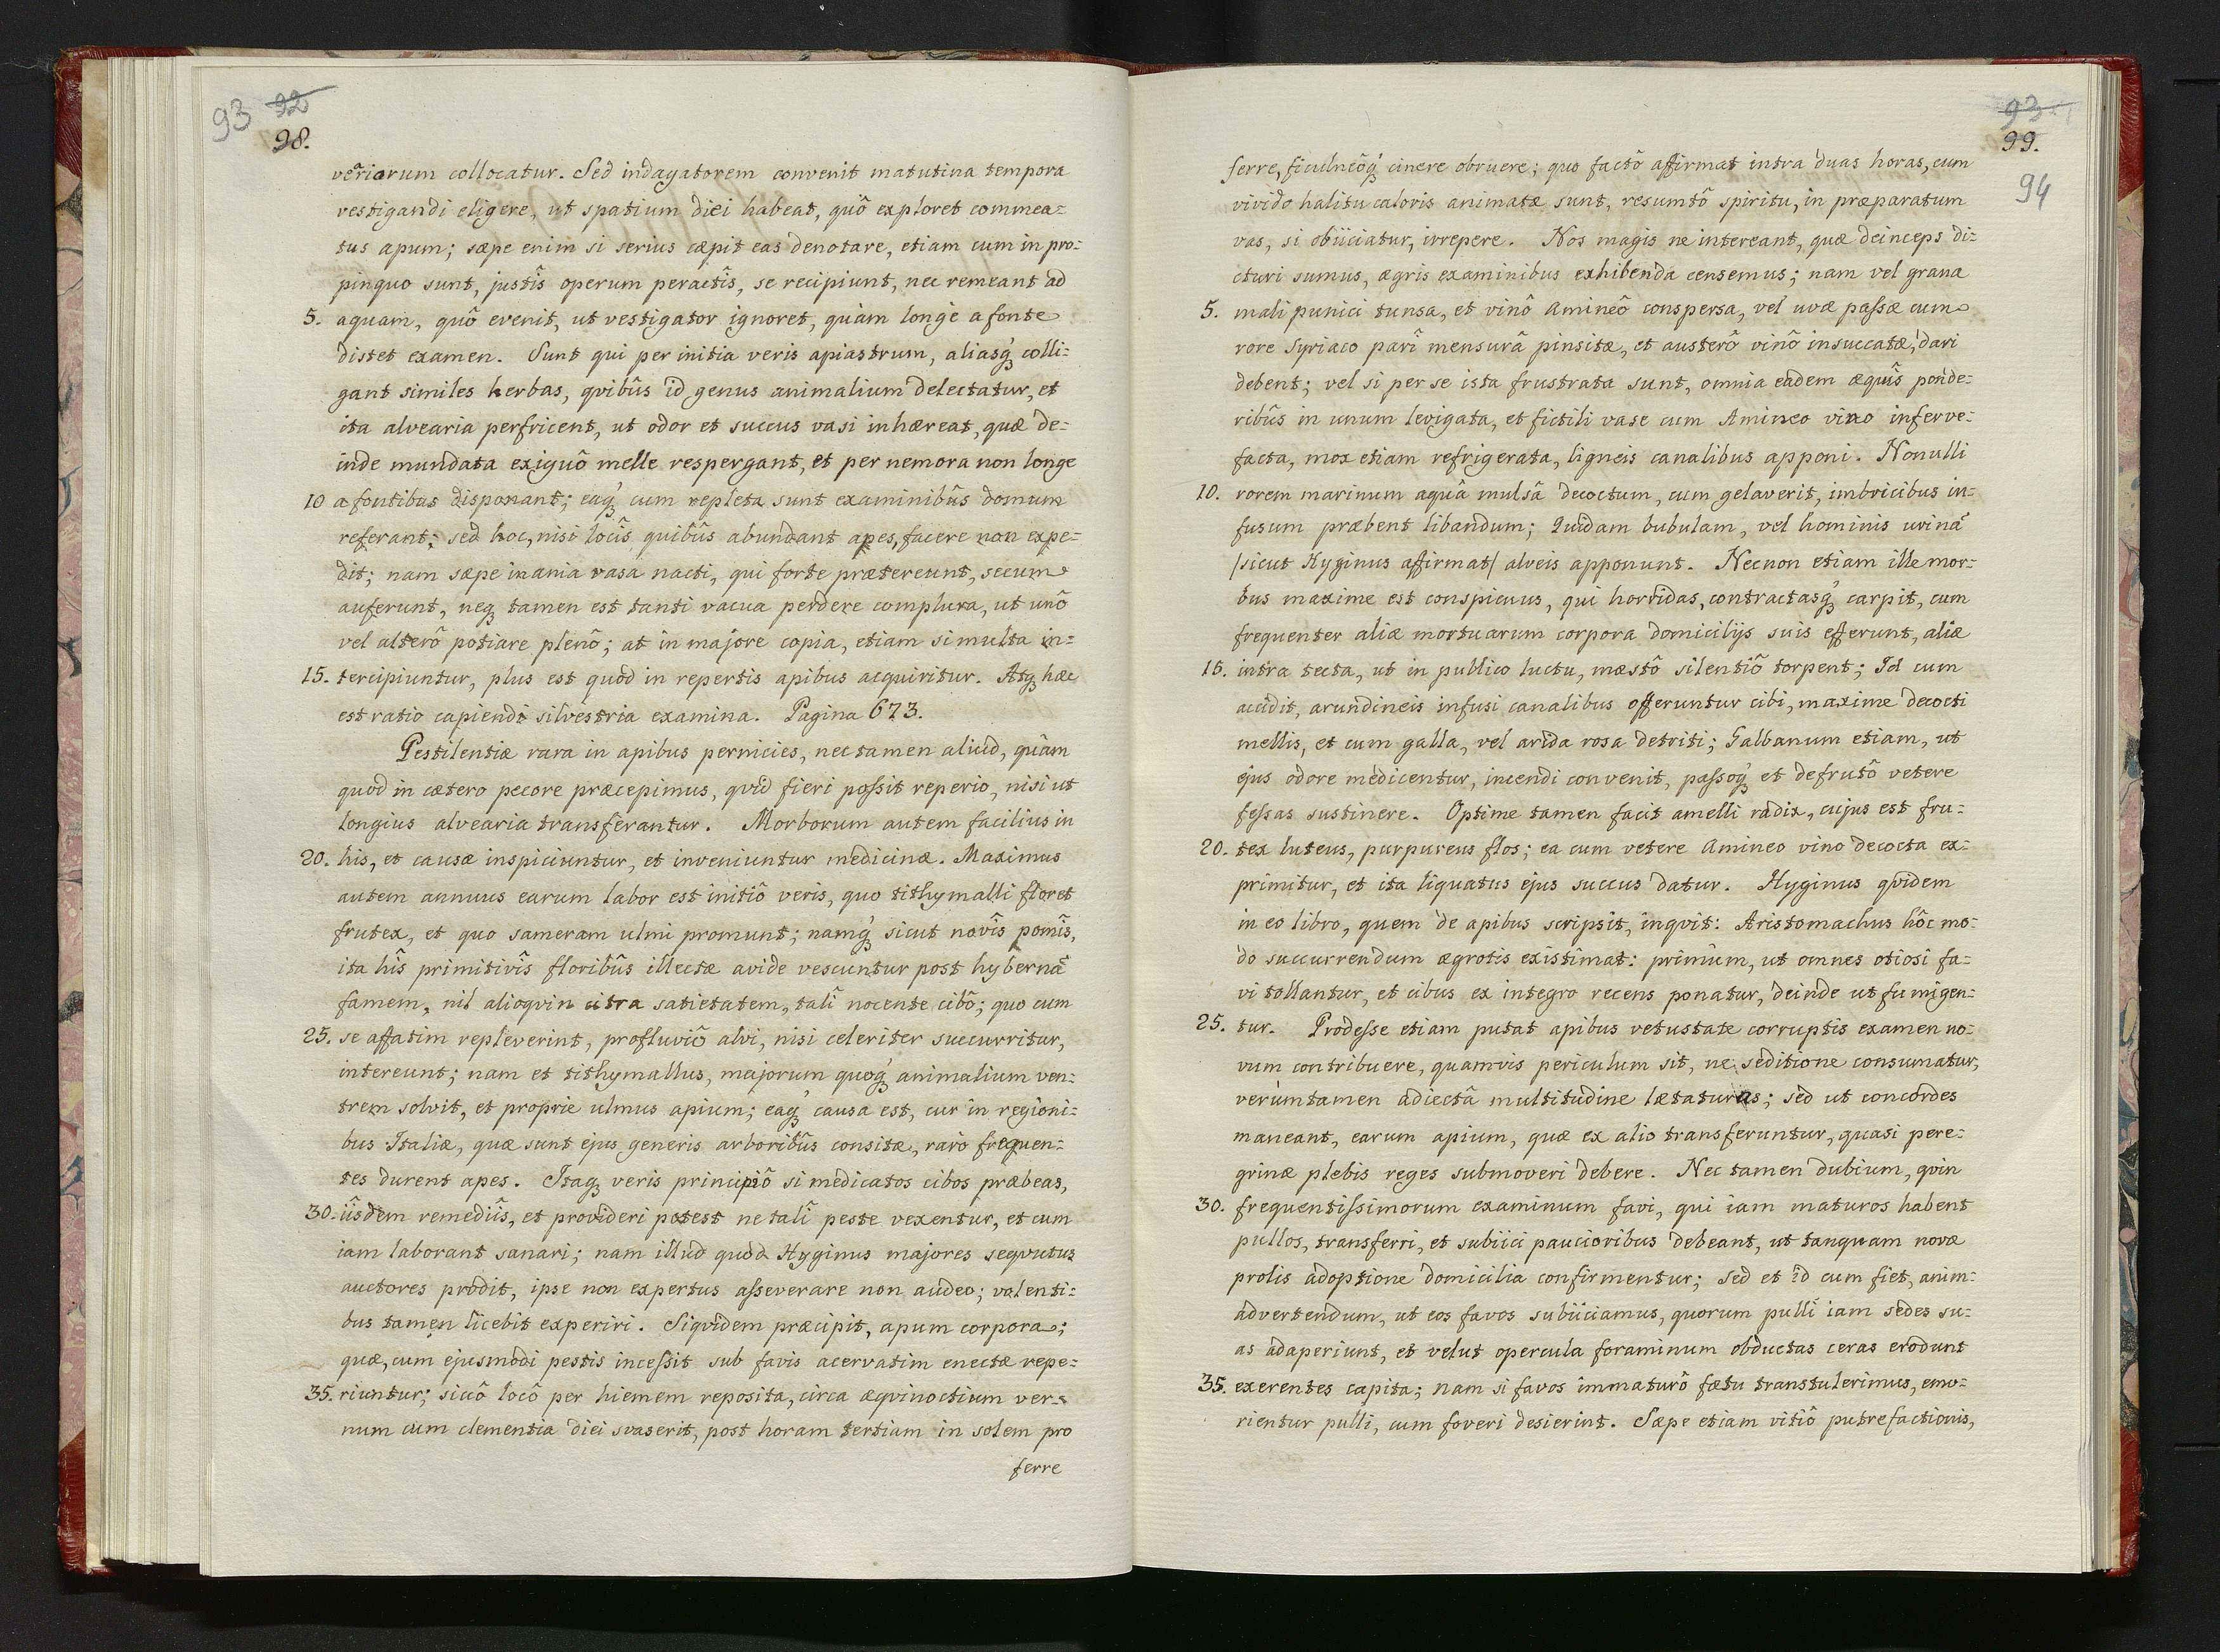 93 92
98.
veriorum collocatur. Sed indagatorem convenit matutina tempora
vestigandi eligere, ut spatium diei habeat, quô exploret commea=
tus apum; sæpe enim si serius cæpit eas denotare, etiam cum in pro=
pinquo sunt, justîs operum peractîs, se recipiunt, nec remeant ad
5. aquam, quô evenit, ut vestigator ignoret, quàm longè a fonte
distet examen. Sunt qui per initia veris apiastrum, aliasq́ colli=
gant similes herbas, qvibûs id genus animalium delectatur, et
ita alvearia perfricent, ut odor et succus vasi inhæreat, quæ de=
inde mundata exiguô melle respergant, et per nemora non longe
10 a fontibus disponant; eaq́ cum repleta sunt examinibûs domum
referant; sed hoc, nisi locîs quibûs abundant apes, facere non expe=
dit; nam sæpe inania vasa nacti, qui forte prætereunt, secum
auferunt, neq tamen est tanti vacua perdere complura, ut unô
vel alterô potiare plenô; at in majore copia, etiam si multa in=
15. tercipiuntur, plus est quòd in repertis apibus acquiritur. Atq hæc
est ratio capiendi silvestria examina. Pagina 673.
Pestilentiæ rara in apibus pernicies, nec tamen aliud, quàm
quod in cætero pecore præcepimus, qvid fieri possit reperio, nisi ut
longius alvearia transferantur. Morborum autem facilius in
20. his, et causæ inspiciuntur, et inveniuntur medicinæ. Maximus
autem annuus earum labor est initiô veris, quo tithymalli floret
frutex, et quo sameram ulmi promunt; namq́ sicut novîs pomîs,
ita hîs primitivîs floribûs illectæ avide vescuntur post hybernã
famem, nil alioqvin citra satietatem, talî nocente cibô; quo cum
25. se affatim repleverint, profluviô alvi, nisi celeriter succurritur,
intereunt; nam et tithymallus, majorum quoq́ animalium ven=
trem solvit, et proprie ulmus apium; eaq́ causa est, cur in regioni=
bus Italiæ, quæ sunt ejus generis arboribûs consitæ, rarò frequen=
tes durent apes. Itaq veris principiô si medicatos cibos præbeas,
30. iisdem remediîs, et provideri potest ne talî peste vexentur, et cum
iam laborant sanari; nam illud quòd Hyginus majores seqvutus
auctores prodit, ipse non expertus asseverare non audeo; volenti=
bus tamen licebit experiri. Siqvidem præcipit, apum corpora;
quæ, cum ejusmodi pestis incessit sub favis acervatim enectæ repe=
35. riuntur; siccô locô per hiemem reposita, circa æqvinoctium ver=
num cum clementia diei svaserit, post horam tertiam in solem pro
ferre
93
99.
94
ferre, ficulneôq́ cinere obruere; quo factô affirmat intra duas horas, cum
vivido halitu caloris animatæ sunt, resumtô spiritu, in præparatum
vas, si obiiciatur, irrepere. Nos magis ne intereant, quæ deinceps di=
cturi sumus, ægris examinibus exhibenda censemus; nam vel grana
5. mali punici tunsa, et vinô Amineô conspersa, vel uvæ passæ cum
rore Syriaco parî mensurâ pinsitæ, et austerô vinô insuccatæ, dari
debent; vel si per se ista frustrata sunt, omnia eadem æquîs ponde=
ribûs in unum levigata, et fictili vase cum Amineo vino inferve=
facta, mox etiam refrigerata, ligneis canalibus apponi. Nonulli
10. rorem marinum aquâ mulsâ decoctum, cum gelaverit, imbricibus in=
fusum præbent libandum; Quidam bubulam, vel hominis urinã
/sicut Hyginus affirmat/ alveis apponunt. Necnon etiam ille mor=
bus maxime est conspicuus, qui horridas, contractasq́ carpit, cum
frequenter aliæ mortuarum corpora domicilijs suis efferunt, aliæ
15. intra tecta, ut in publico luctu, mæstô silentiô torpent; Id cum
accidit, arundineis infusi canalibus offeruntur cibi, maxime decocti
mellis, et cum galla, vel arida rosa detriti; Galbanum etiam, ut
ejus odore medicentur, incendi convenit, passoq́ et defrutô vetere
fessas sustinere. Optime tamen facit amelli radix, cujus est fru=
20. tex luteus, purpureus flos; ea cum vetere Amineo vino decocta ex=
primitur, et ita liquatus ejus succus datur. Hyginus qvidem
in eo libro, quem de apibus scripsit, inqvit: Aristomachus hôc mo=
do succurrendum ægrotis existimat: primùm, ut omnes otiosi fa=
vi tollantur, et cibus ex integro recens ponatur, deinde ut fumigen=
25. tur. Prodesse etiam putat apibus vetustate corruptis examen no=
vum contribuere, quamvis periculum sit, ne seditione consumatur,
verùmtamen adiectâ multitudine lætaturas; sed ut concordes
maneant, earum apium, quæ ex alio transferuntur, quasi pere=
grinæ plebis reges submoveri debere. Nec tamen dubium, qvin
30. frequentissimorum examinum favi, qui iam maturos habent
pullos, transferri, et subiici paucioribus debeant, ut tanquam novæ
prolis adoptione domicilia confirmentur; sed et id cum fiet, anim=
advertendum, ut eos favos subiiciamus, quorum pulli iam sedes su=
as adaperiunt, et velut opercula foraminum obductas ceras erodunt
35. exerentes capita; nam si favos immaturô fætu transtulerimus, emo=
rientur pulli, cum foveri desierint. Sæpe etiam vitiô putrefactionis,